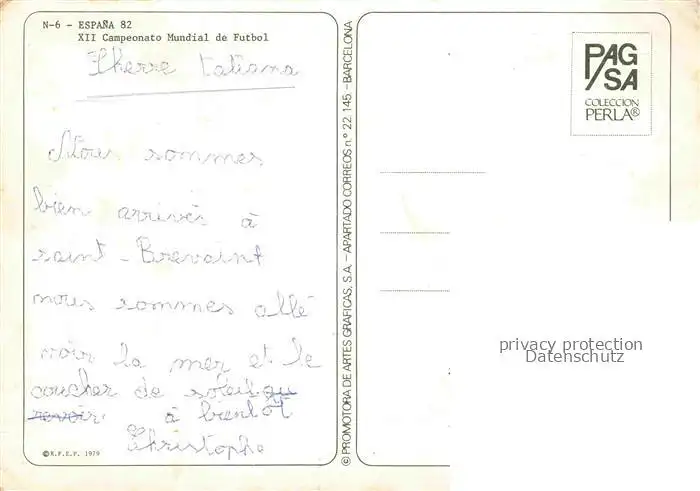 N-6 - ESPAÑA 82
XII Campeonato Mundial de Futbol
Therre tatiana
Nous sommes
bien arrivés à
saint - Brevaint
nous sommes allé
voir la mer et le
coucher de soleil au
revoir à bientôt
Christophe
©R.F.E.F. 1979
© PROMOTORA DE ARTES GRAFICAS, S.A. - APARTADO CORREOS n.° 22.145.-BARCELONA
PAG/SA
COLECCION
PERLA®
privacy protection
Datenschutz